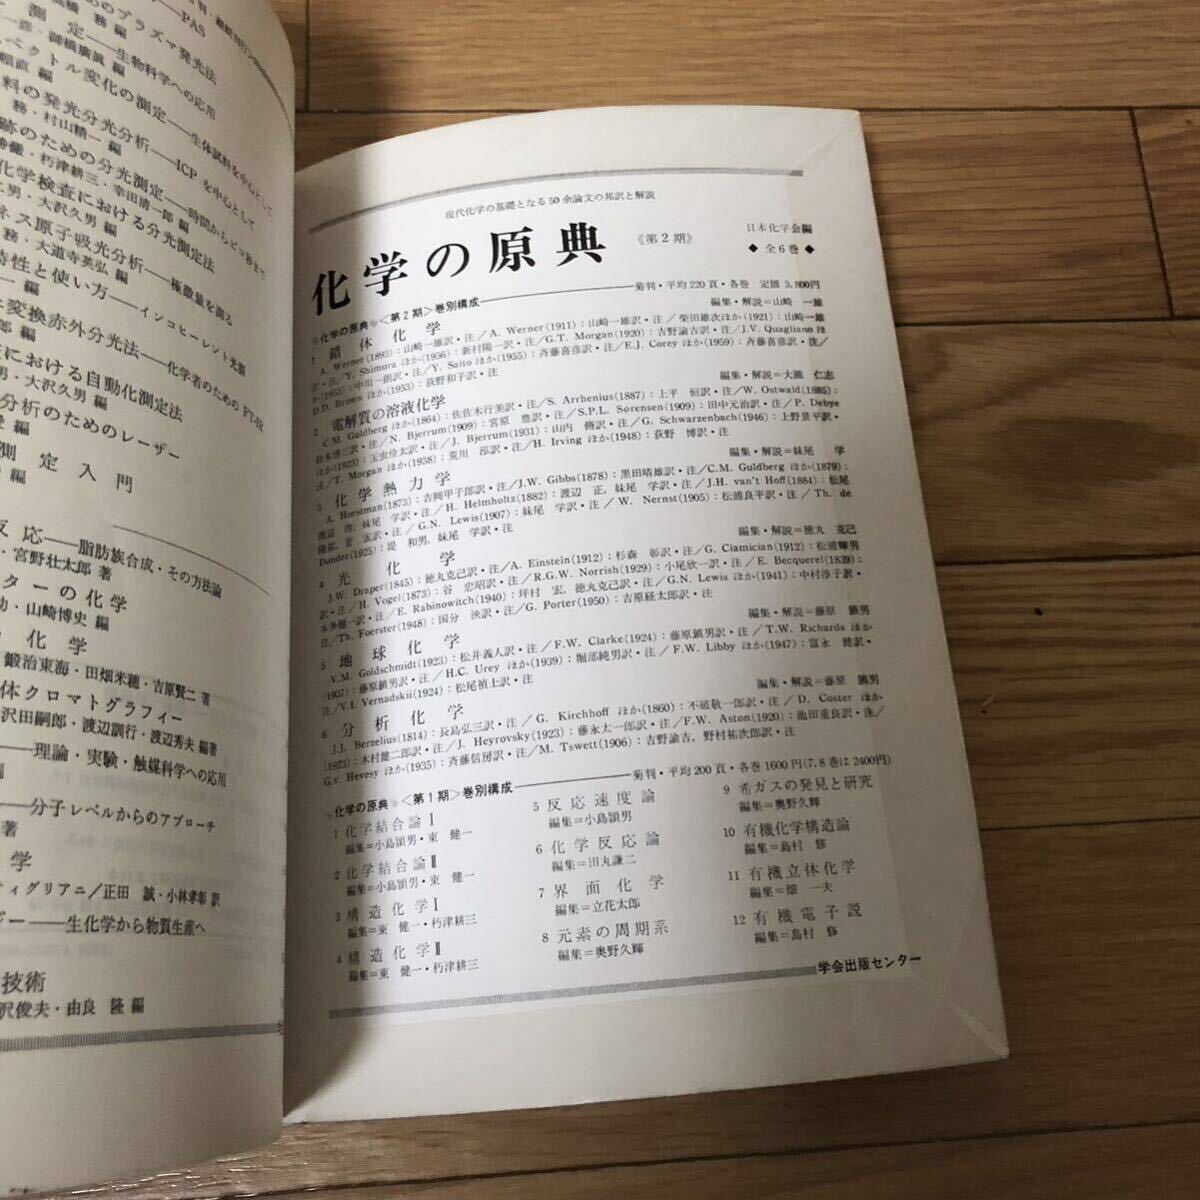 PAS
めのプラズマ発光法
測定――生物科学への応用
ペクトル変化の測定――生体試料を中心として
料の発光分光分析――ICPを中心として
務・村山精一 編
跡のための分光測定――時間からピコ秒まで
朽津耕三・幸田清一郎 編
化学検査における分光測定法
男・大沢久男 編
ネス原子吸光分析――極微量を測る
務・大道寺英弘 編
特性と使い方――インコヒーレント光源
一 編
変換赤外分光法――化学者のためのFT-IR
郎 編
における自動化測定法
男・大沢久男 編
分析のためのレーザー
編
測定入門
編
反応――脂肪族合成・その方法論
・宮野壮太郎 著
ターの化学
功・山崎博史 編
化学
鍛治東海・田畑米穂・吉原賢二 著
体クロマトグラフィー
沢田嗣郎・渡辺訓行・渡辺秀夫 編著
――理論・実験・触媒科学への応用
――分子レベルからのアプローチ
著
学
ティグリアニ／正田 誠・小林孝彰 訳
ジー――生化学から物質生産へ
技術
沢俊夫・由良 隆 編
現代化学の基礎となる50余論文の邦訳と解説
化学の原典《第2期》
日本化学会編
◆全6巻◆
◆化学の原典◆〈第2期〉巻別構成――菊判・平均220頁・各巻 定価 3,800円
1 錯体化学 編集・解説＝山崎 一雄
A. Werner(1893)：山崎一雄訳・注／A. Werner(1911)：山崎一雄訳・注／柴田雄次ほか(1921)：山崎一雄
訳・注／Y. Shimura ほか(1956)：新村陽一訳・注／G.T. Morgan(1920)：吉野諭吉訳・注／J.V. Quagliano ほ
か(1953)：中川一朗訳・注／Y. Saito ほか(1955)：斉藤喜彦訳・注／E.J. Corey ほか(1959)：斉藤喜彦訳・注／
D.D. Brown ほか(1953)：荻野和子訳・注
2 電解質の溶液化学 編集・解説＝大瀧 仁志
C.M. Guldberg ほか(1864)：佐佐木行美訳・注／S. Arrhenius(1887)：上平 恒訳・注／W. Ostwald(1885)：
鈴木啓三訳・注／N. Bjerrum(1909)：宮原 豊訳・注／S.P.L. Sørensen(1909)：田中元治訳・注／P. Debye
ほか(1923)：玉虫伶太訳・注／J. Bjerrum(1931)：山内 脩訳・注／G. Schwarzenbach(1946)：上野景平訳・
注／T. Morgan ほか(1938)：荒川 訳・注／H. Irving ほか(1948)：荻野 博訳・注
3 化学熱力学 編集・解説＝妹尾 学
A. Horstman(1873)：吉岡甲子郎訳・注／J.W. Gibbs(1878)：黒田晴雄訳・注／C.M. Guldberg ほか(1879)：
渡辺 啓, 妹尾 学訳・注／H. Helmholtz(1882)：渡辺 正, 妹尾 学訳・注／J.H. van't Hoff(1884)：松尾
隆祐, 菅 宏訳・注／G.N. Lewis(1907)：妹尾 学訳・注／W. Nernst(1905)：松浦良平訳・注／Th. de
Donder(1925)：堤 和男, 妹尾 学訳・注
4 光化学 編集・解説＝徳丸 克己
J.W. Draper(1845)：徳丸克己訳・注／A. Einstein(1912)：杉森 彰訳・注／G. Ciamician(1912)：松浦輝男
訳・注／H. Vogel(1873)：谷 忠昭訳・注／R.G.W. Norrish(1929)：小尾欣一訳・注／E. Becquerel(1839)：
本多健一訳・注／E. Rabinowitch(1940)：坪村 宏, 徳丸克己訳・注／G.N. Lewis ほか(1941)：中村淳子訳・
注／Th. Foerster(1948)：国分 泱訳・注／G. Porter(1950)：吉原経太郎訳・注
5 地球化学 編集・解説＝藤原 鎮男
V.M. Goldschmidt(1923)：松井義人訳・注／F.W. Clarke(1924)：藤原鎮男訳・注／T.W. Richards ほか
(1907)：藤原鎮男訳・注／H.C. Urey ほか(1939)：堀部純男訳・注／F.W. Libby ほか(1947)：富永 健訳・
注／V.I. Vernadskii(1924)：松尾禎士訳・注
6 分析化学 編集・解説＝藤原 鎮男
J.J. Berzelius(1814)：長島弘三訳・注／G. Kirchhoff ほか(1860)：不破敬一郎訳・注／D. Coster ほか
(1923)：木村健二郎訳・注／J. Heyrovsky(1923)：藤永太一郎訳・注／F.W. Aston(1920)：池田重良訳・注／
G.v. Hevesy ほか(1935)：斉藤信房訳・注／M. Tswett(1906)：吉野諭吉, 野村祐次郎訳・注
◆化学の原典◆〈第1期〉巻別構成――菊判・平均200頁・各巻 1600円(7,8巻は 2400円)
1 化学結合論Ⅰ
編集＝小島頴男・東 健一
2 化学結合論Ⅱ
編集＝小島頴男・東 健一
3 構造化学Ⅰ
編集＝東 健一・朽津耕三
4 構造化学Ⅱ
編集＝東 健一・朽津耕三
5 反応速度論
編集＝小島頴男
6 化学反応論
編集＝田丸謙二
7 界面化学
編集＝立花太郎
8 元素の周期系
編集＝奥野久輝
9 希ガスの発見と研究
編集＝奥野久輝
10 有機化学構造論
編集＝島村 修
11 有機立体化学
編集＝畑 一夫
12 有機電子説
編集＝島村 修
学会出版センター